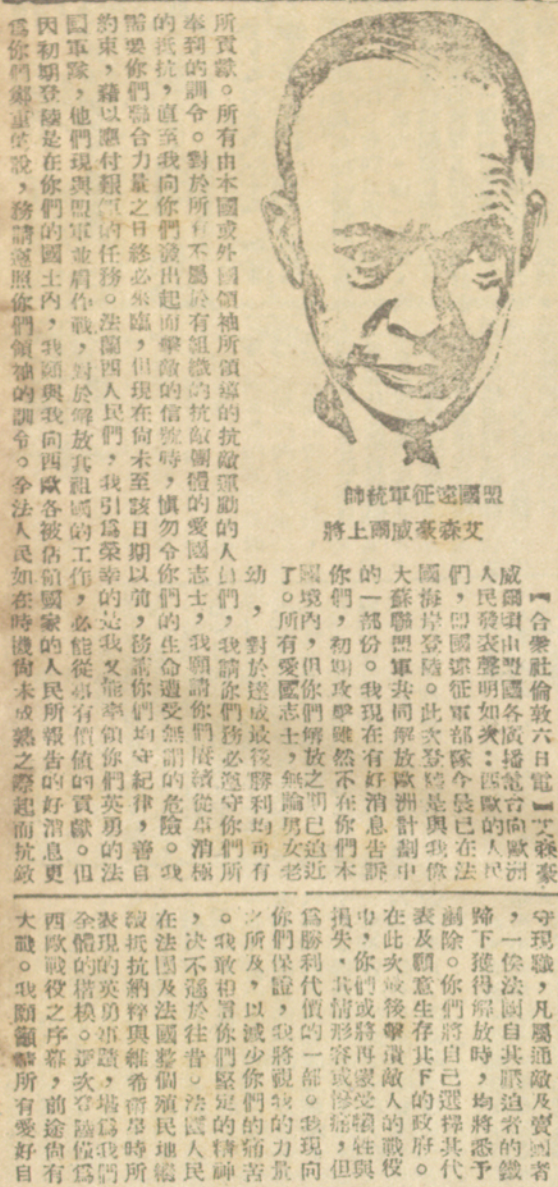 盟國遠征軍統帥
艾森豪威爾上將
【合衆社倫敦六日電】艾森豪
威爾頃由盟國各廣播電台向歐洲
人民發表聲明如次：西歐的人民
們，盟國遠征軍部隊今晨已在法
國海岸登陸。此次登陸是與我偉
大蘇聯盟軍共同解放歐洲計劃中
的一部份。我現在有好消息告訴
你們，初期攻擊雖然不在你們本
國境內，但你們解放之期已迫近
了。所有愛國志士，無論男女老
幼，對於達成最後勝利均可有
所貢獻。所有由本國或外國領袖所領導的抗敵運動的人員們，我請你們務必遵守你們所
奉到的訓令。對於所有不屬於有組織的抗敵團體的愛國志士，我願請你們繼續從事消極
的抵抗，直至我向你們發出起而擊敵的信號時，慎勿令你們的生命遭受無謂的危險。我
需要你們聯合力量之日終必來臨，但現在尚未至該日期以前，務請你們均守紀律，善自
約束，藉以應付艱鉅的任務。法蘭西人民們，我引爲榮幸的是我又能率領你們英勇的法
國軍隊，他們現與盟軍並肩作戰，對於解放其祖國的工作，必能從事有價值的貢獻。但
因初期登陸是在你們的國土內，我願與我向西歐各被佔領國家的人民所報告的好消息更
爲你們鄭重的說，務請遵照你們領袖的訓令。全法人民如在時機尚未成熟之際起而抗敵
守現職，凡屬通敵及賣國者
，一俟法國自其壓迫者的鐵
蹄下獲得解放時，均將悉予
剷除。你們將自己選擇其代
表及願意生存其下的政府。
在此次最後擊潰敵人的戰役
中，你們或將再蒙受犧牲與
損失，其情形容或慘痛，但
爲勝利代價的一部。我現向
你們保證，我將視我的力量
之所及，以減少你們的痛苦
。我敢相信你們堅定的精神
，決不遜於往昔。法國人民
在法國及法國整個殖民地繼
續抵抗納粹與維希衛星時所
表現的英勇事蹟，堪爲我們
全體的楷模。這次登陸僅爲
西歐戰役之序幕，前途尚有
大戰。我願籲請所有愛好自